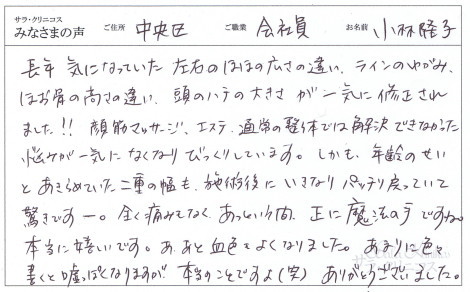 サラ・クリニコス
みなさまの声 ご住所 中央区 ご職業 会社員 お名前 小林隆子
長年 気になっていた 左右のほほの広さの違い、ラインのゆがみ、
ほお骨の高さの違い、頭のハチの大きさ が一気に修正され
ました!! 顔筋マッサージ、エステ、通常の整体では解決できなかった
悩みが一気になくなり びっくりしています。しかも、年齢のせい
とあきらめていた二重の幅も、施術後に いきなり パッチリ戻っていて
驚きですー。全く痛みもなく、あっという間、正に魔法の手ですね。
本当に嬉しいです。あ、あと血色もよくなりました。あまりに色々
書くと嘘っぽくなりますが 本当のことですよ(笑) ありがとうございました。
サラ・クリニコス